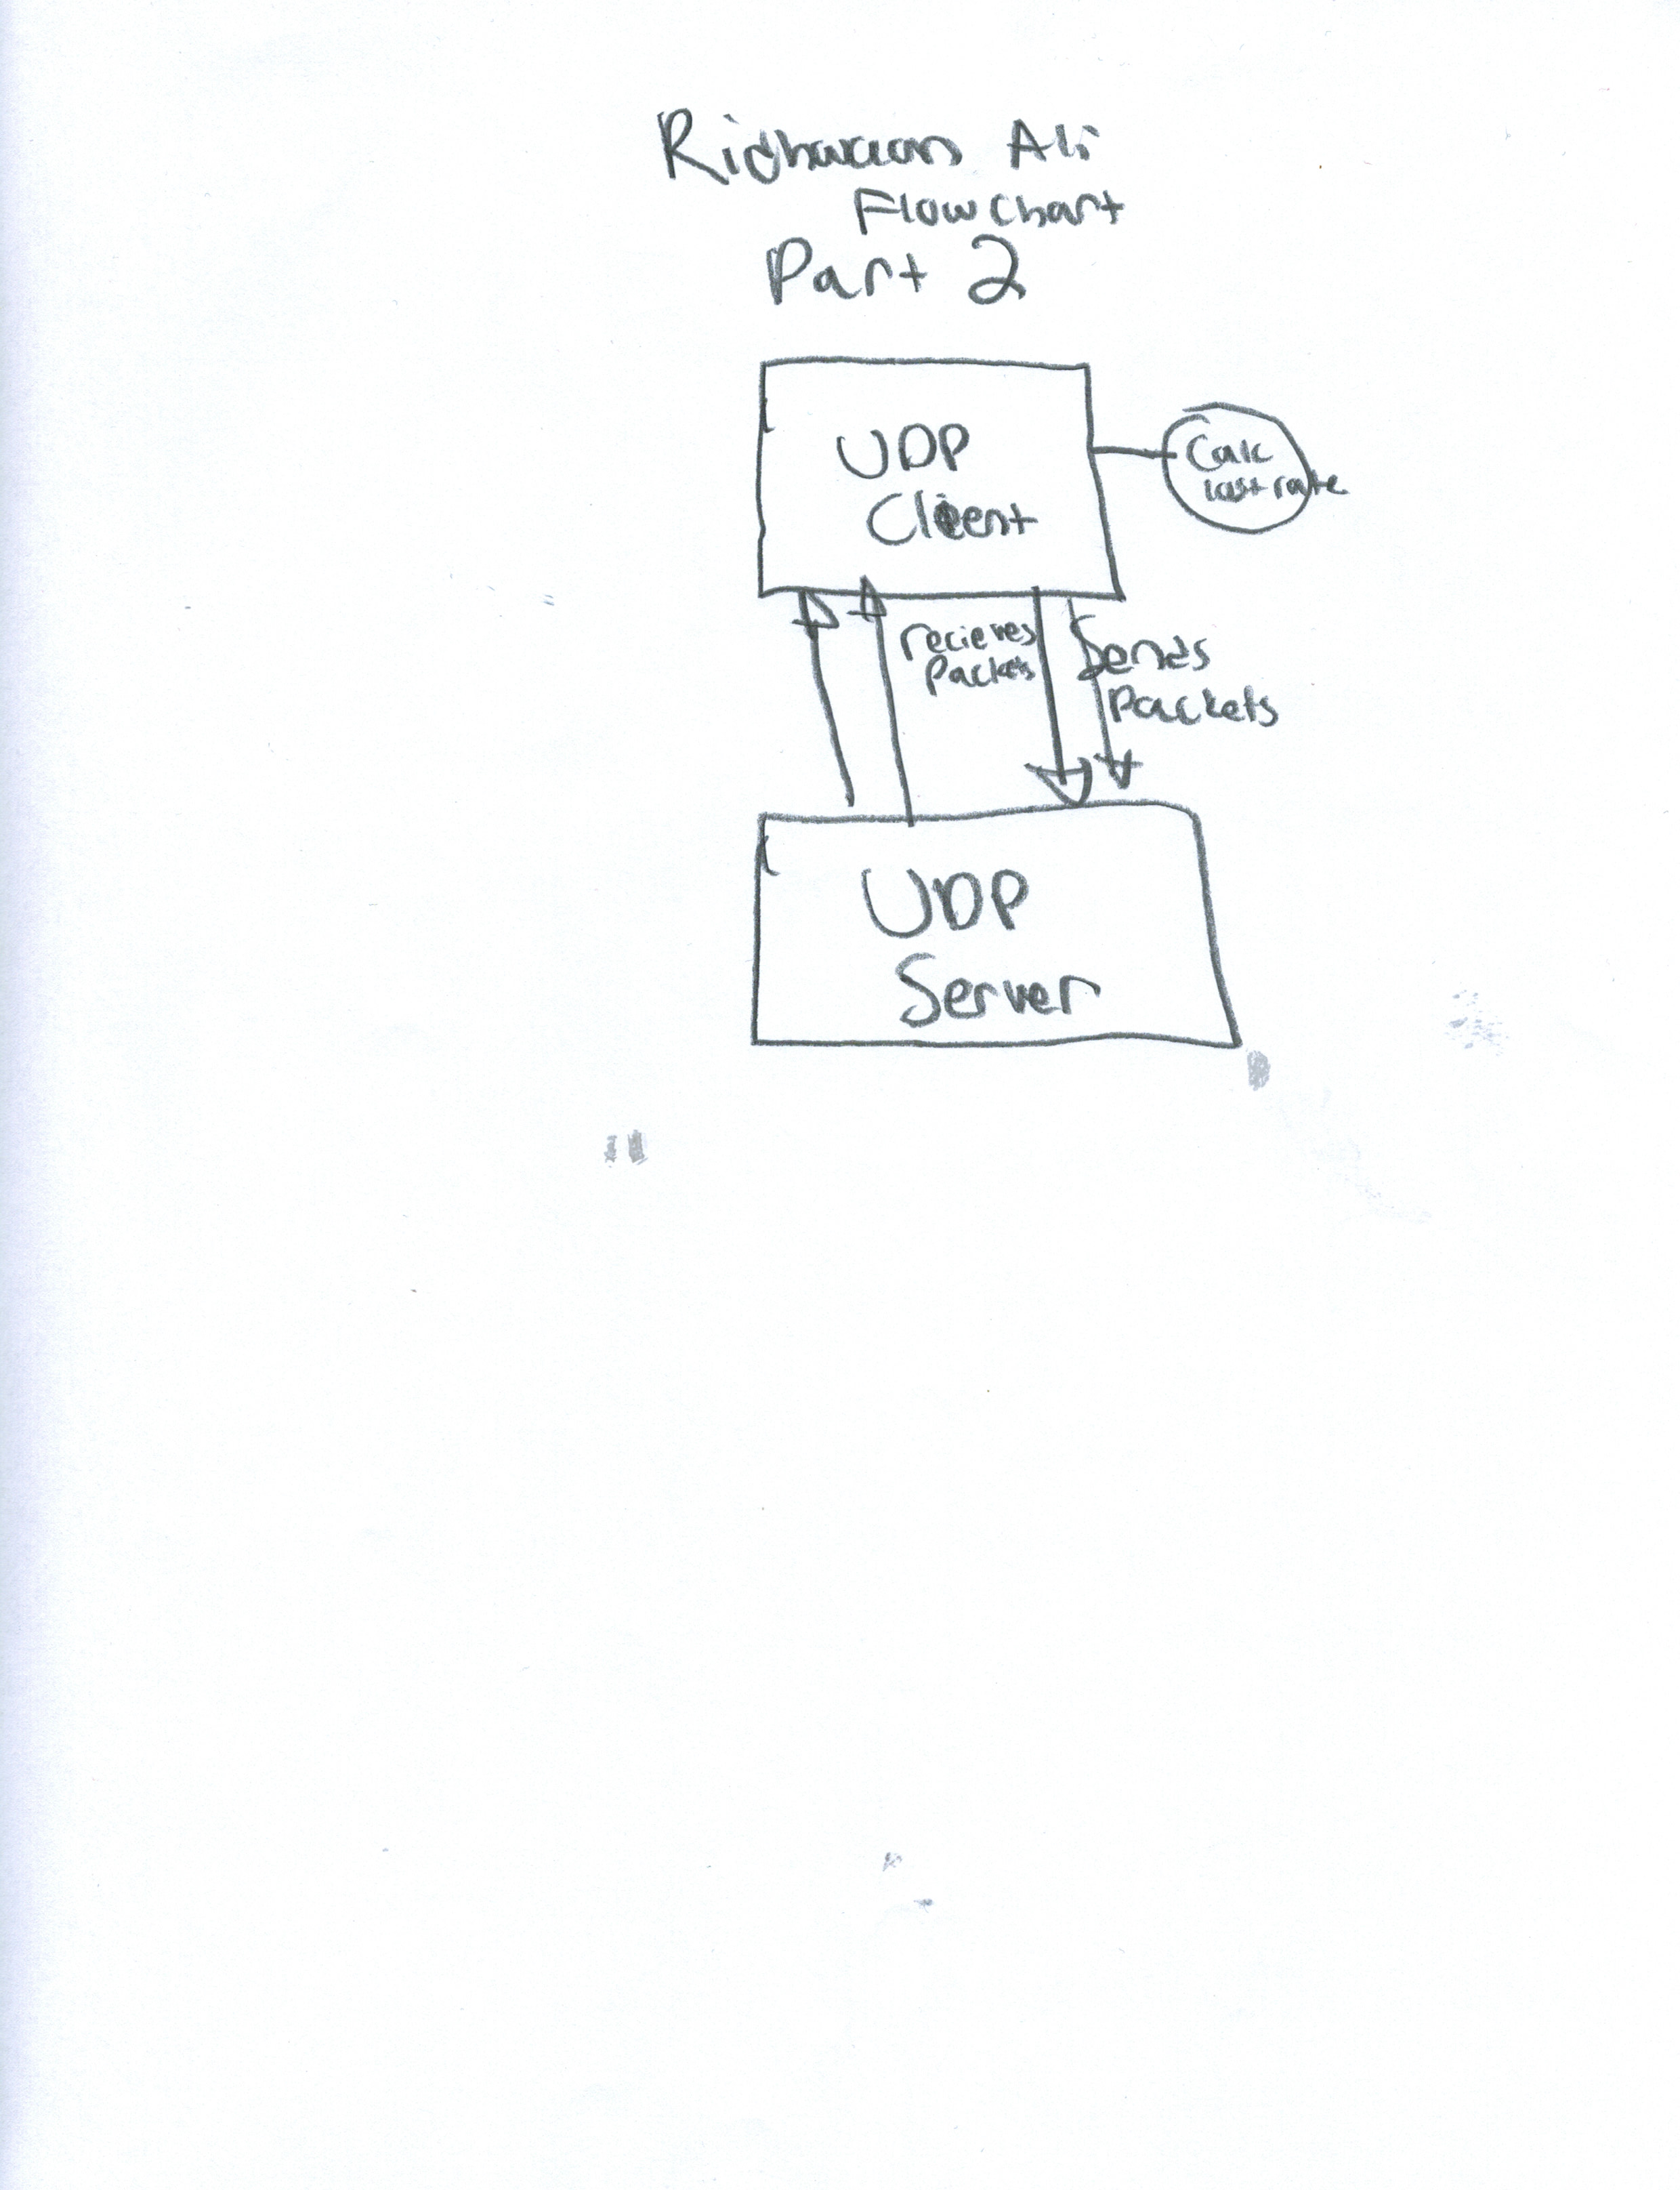 Ridhwaan Ali
Flowchart
Part 2
UDP
Client
Calc
lost rate
recieves
Packets
Sends
Packets
UDP
Server